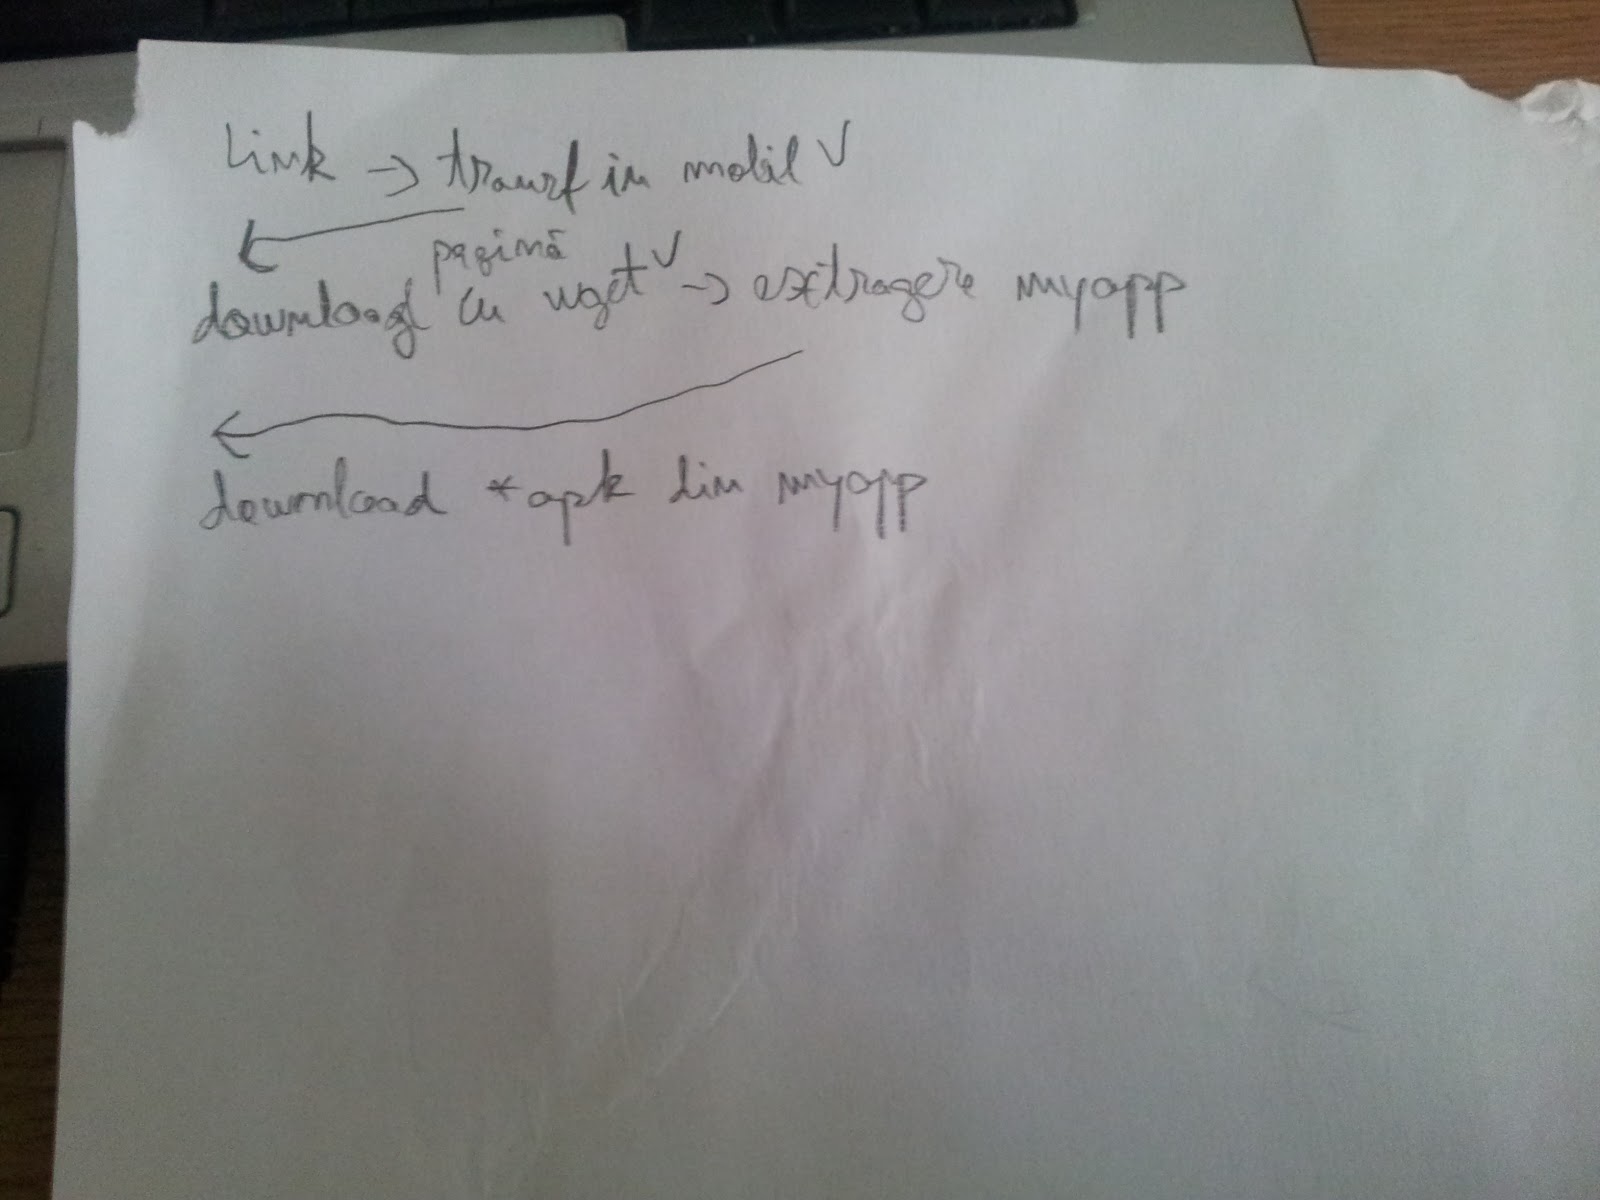 Link → transf in mobil √
pagină
download cu wget √ → extragere myapp
download *apk din myapp